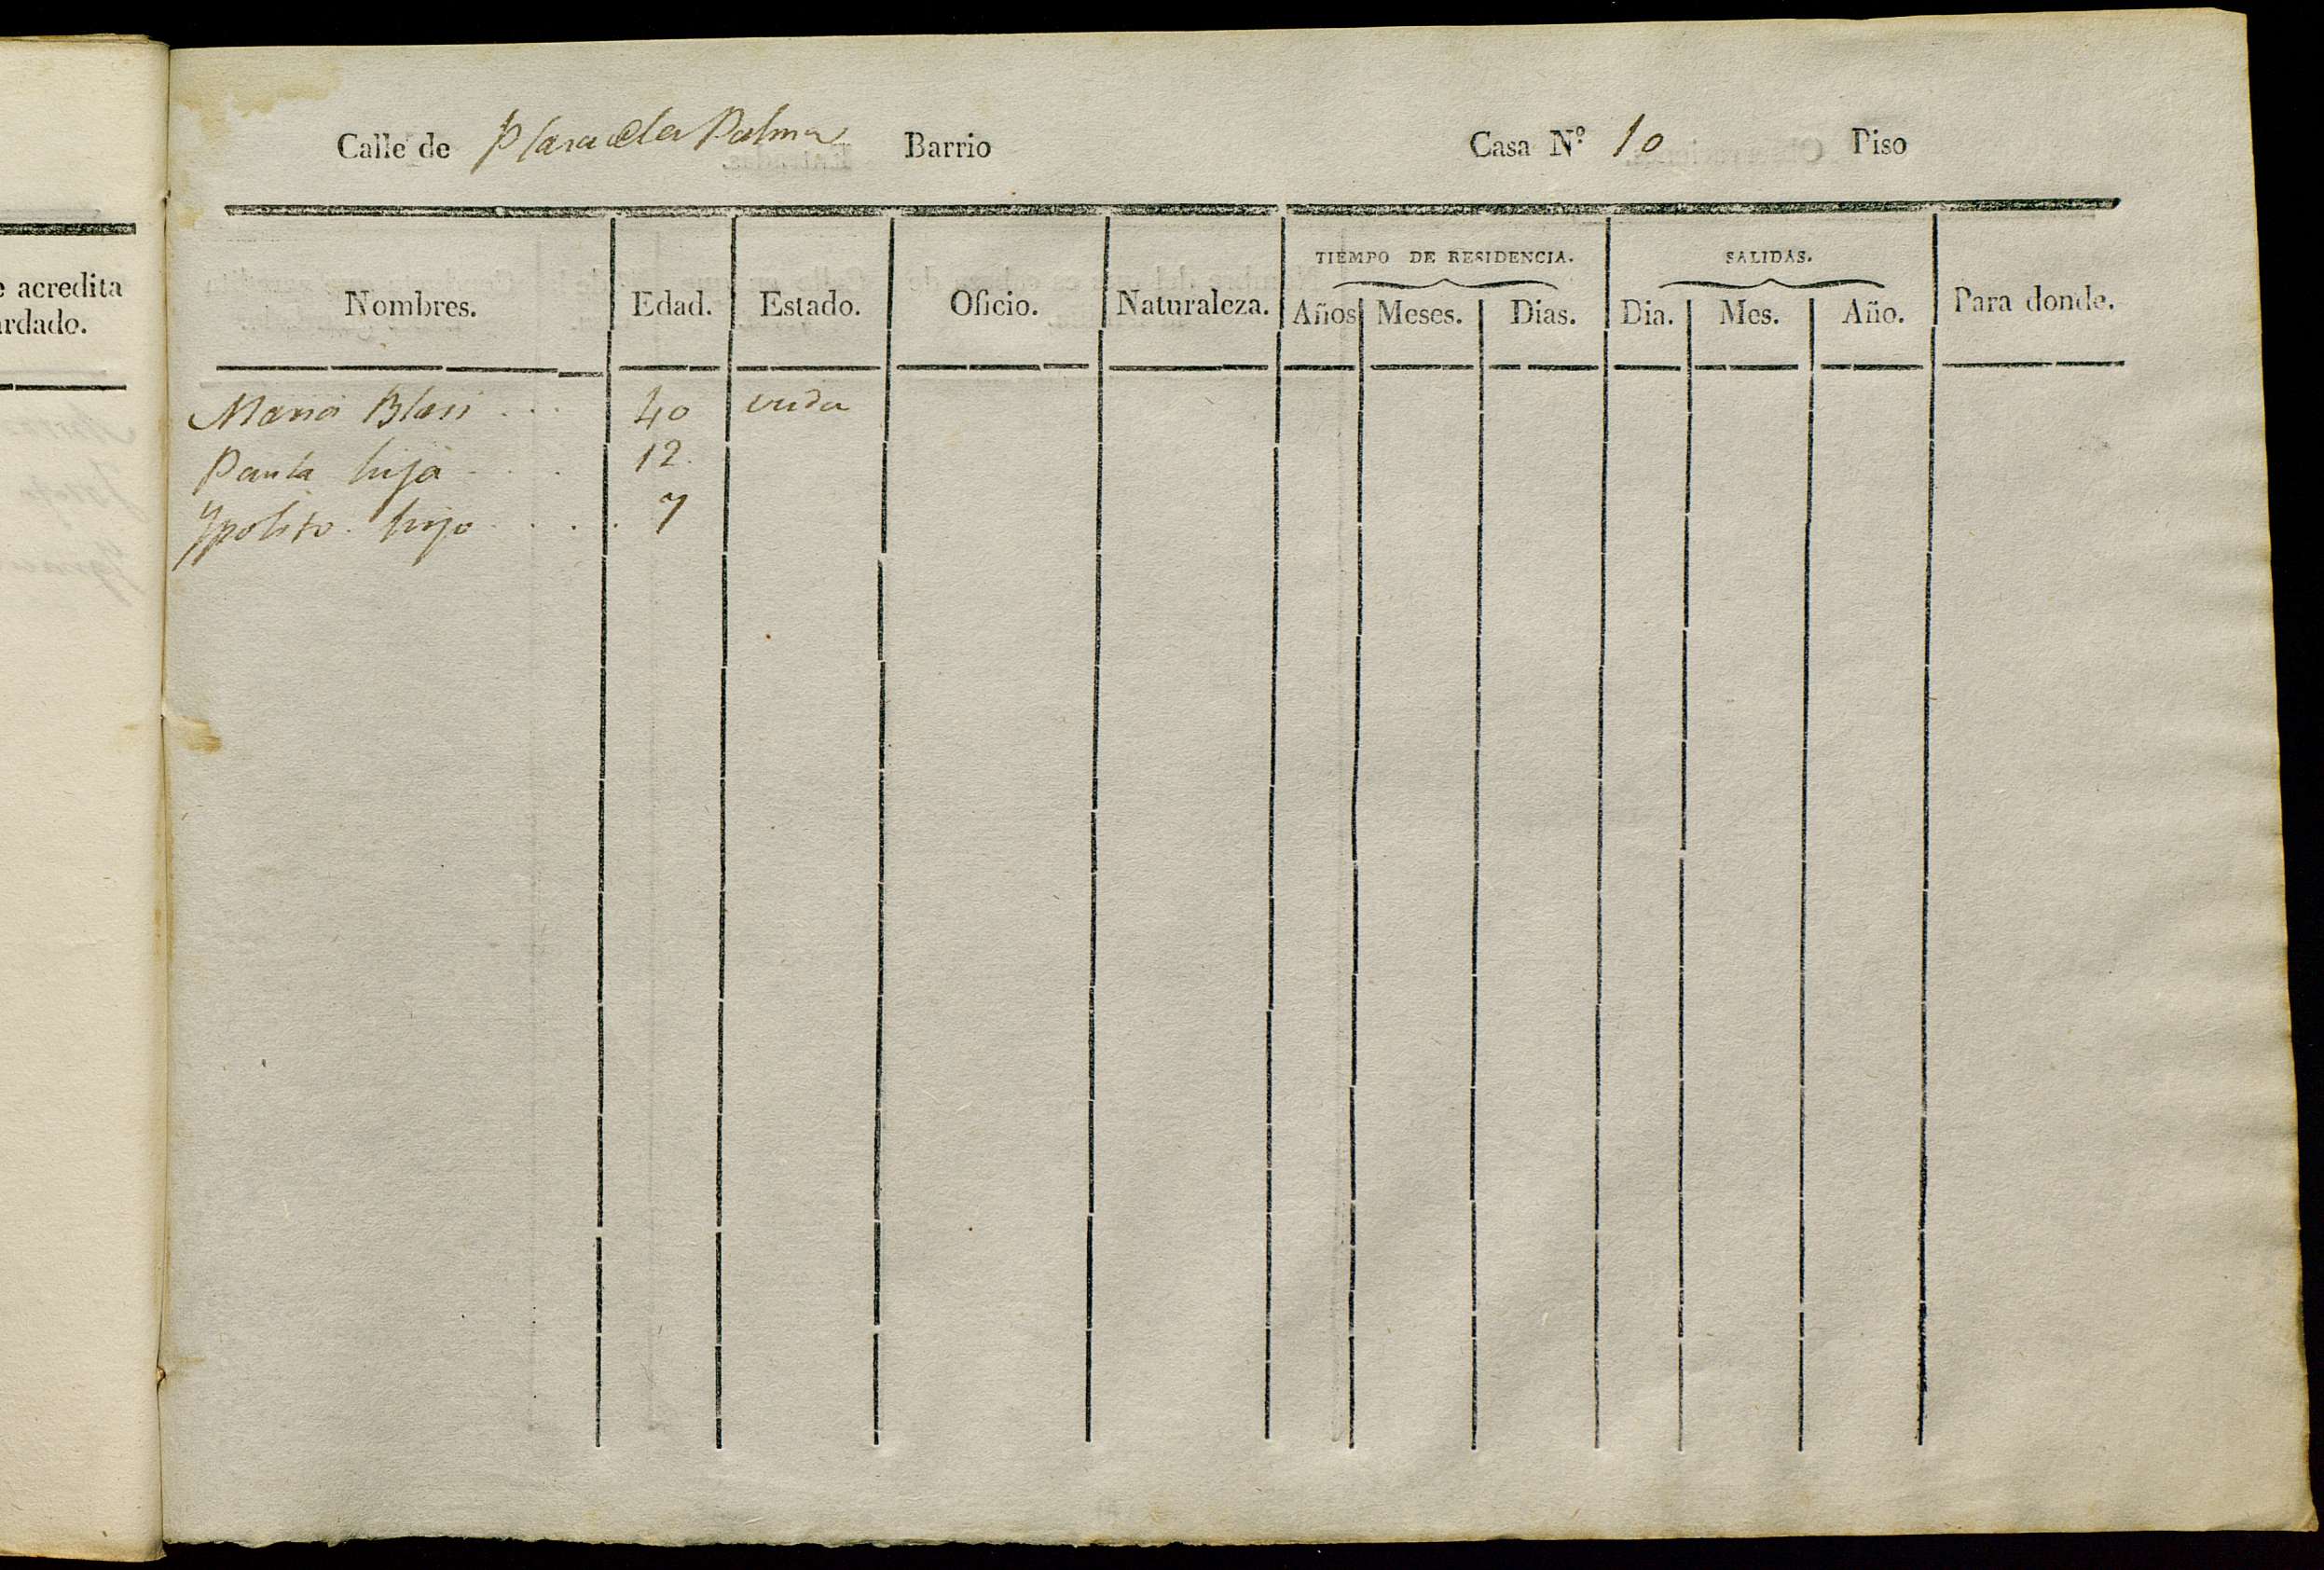 e acredita
ardado.
Calle de Plasa de la Palma Barrio Casa N.º 10 Piso
TIEMPO DE RESIDENCIA. SALIDAS.
Nombres. Edad. Estado. Oficio. Naturaleza. Años Meses. Dias. Dia. Mes. Año. Para donde.
Maria Blasi 40 viuda
Paula hija 12.
Ypolito hijo 7